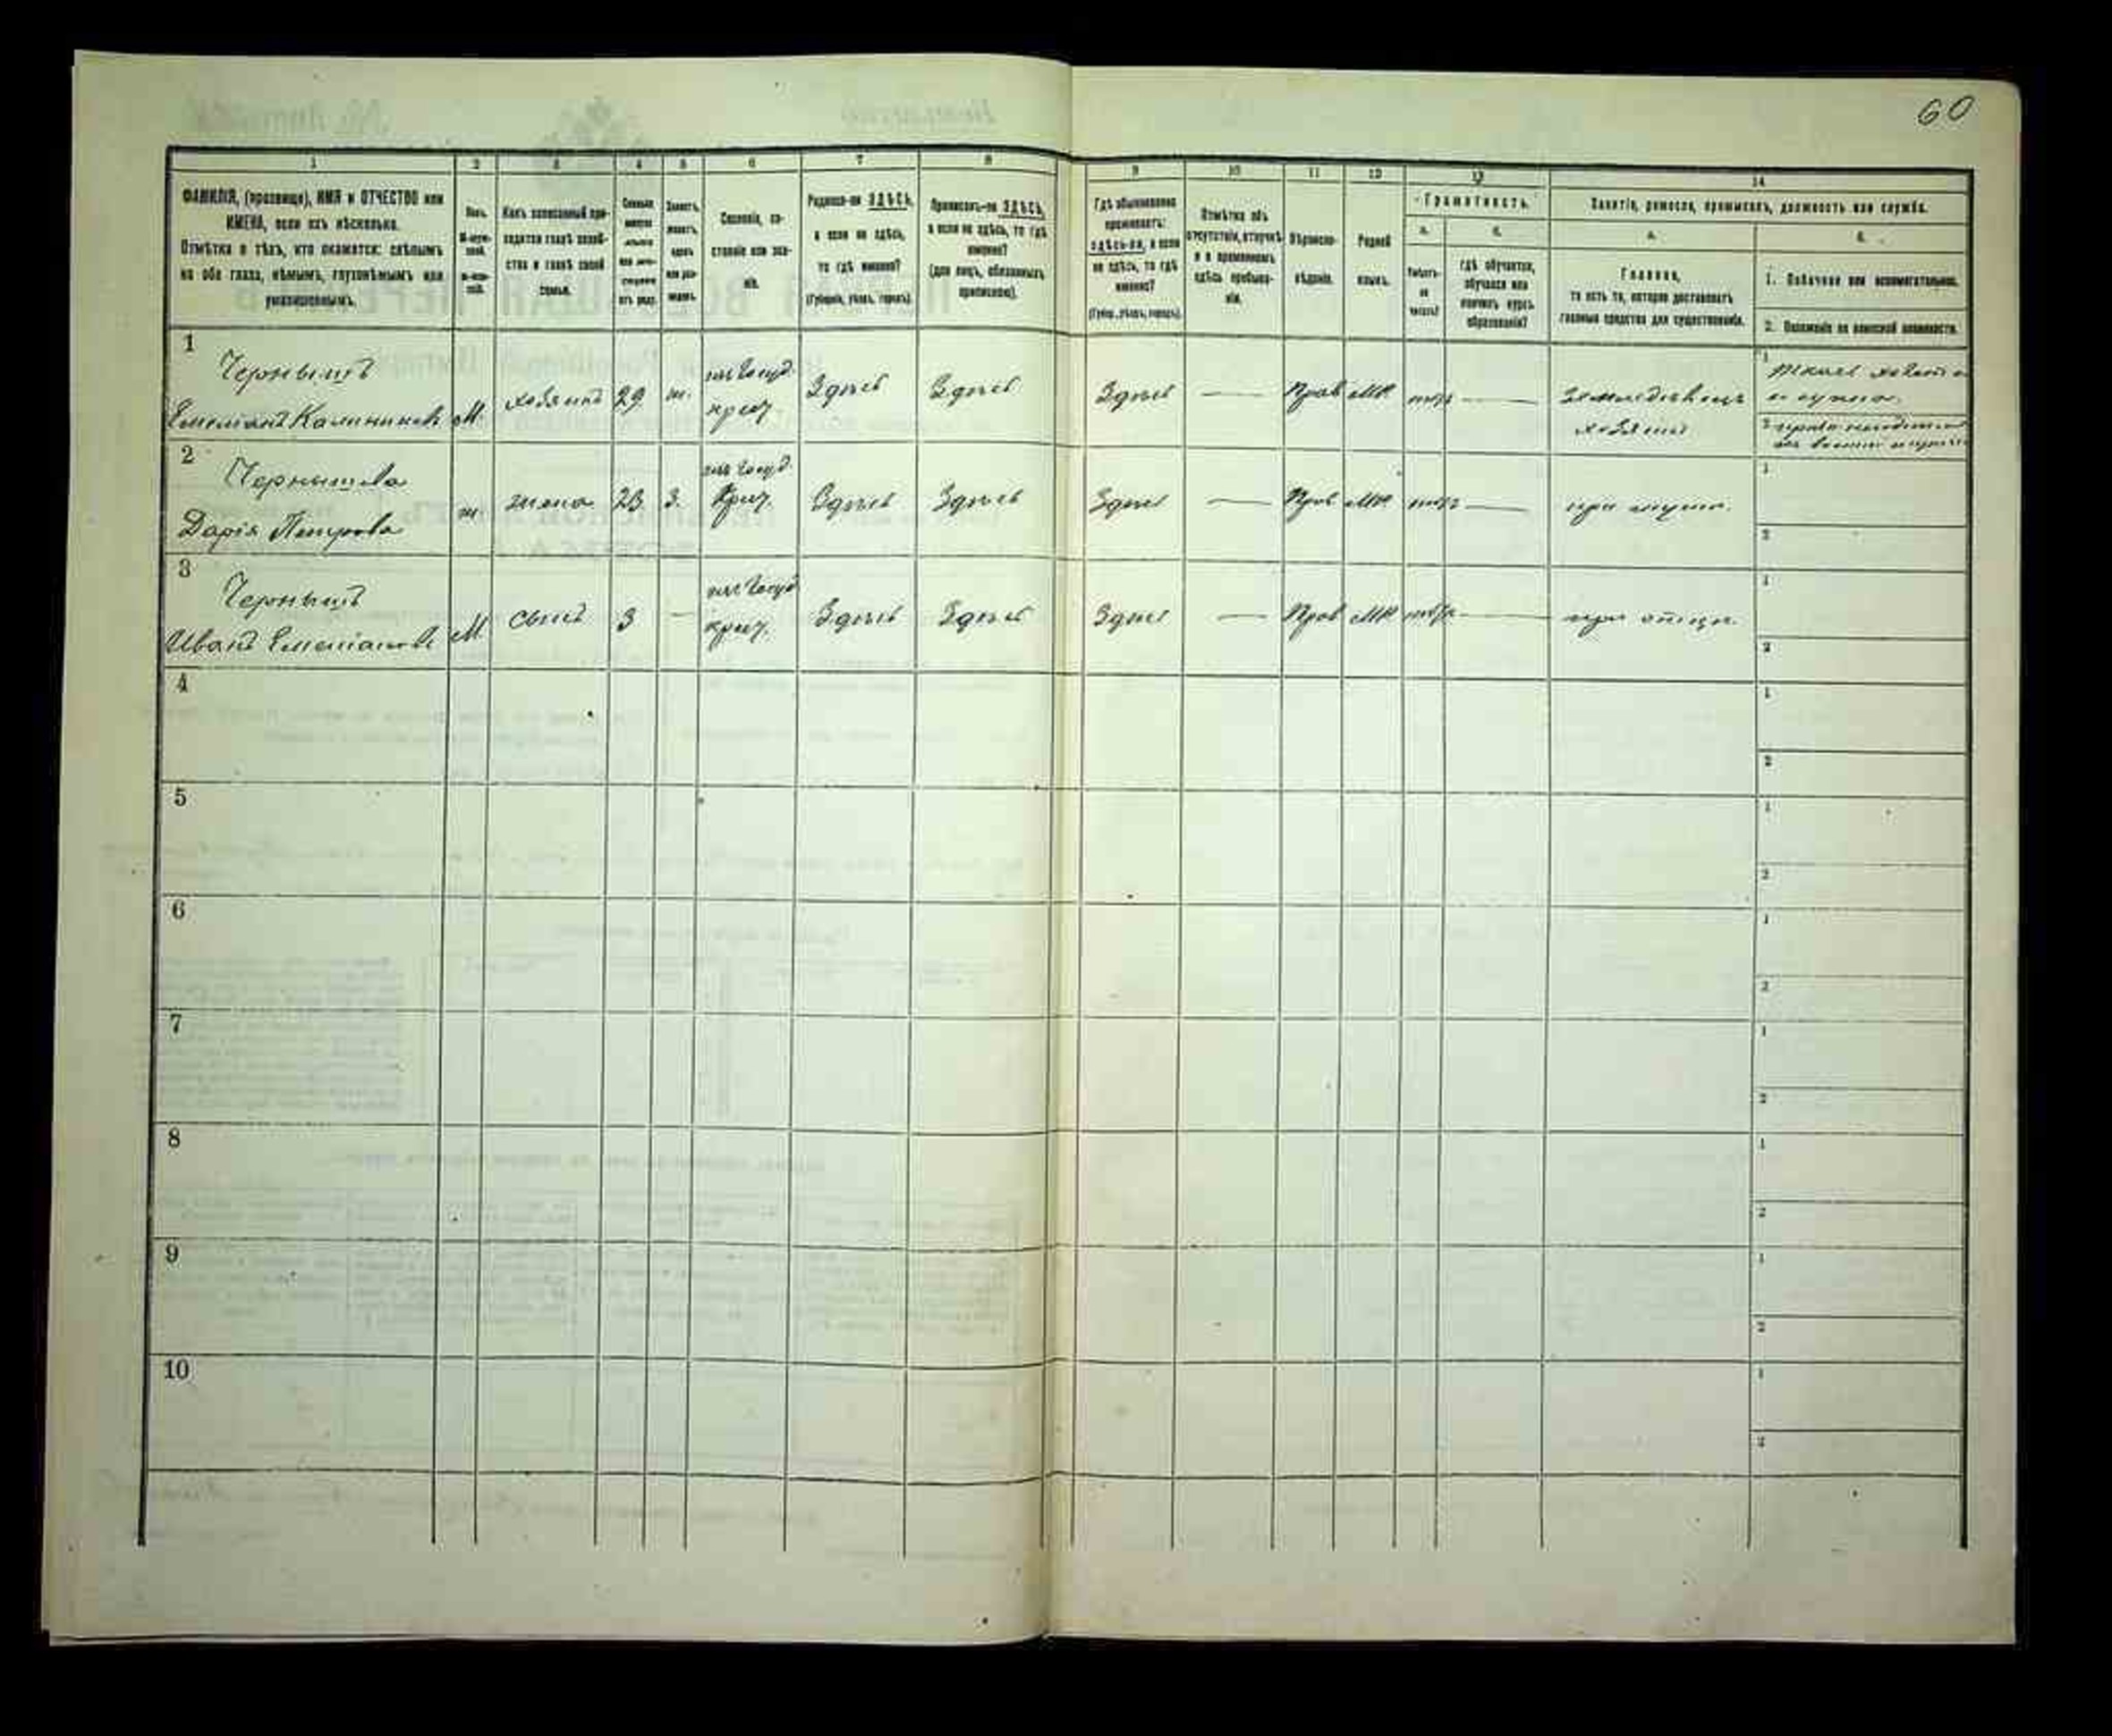 60
1 2 3 4 5 6 7 8 9 10 11 12 13 14
ФАМИЛІЯ, (прозвище), ИМЯ и ОТЧЕСТВО или
ИМЕНА, если ихъ нѣсколько.
Отмѣтка о тѣхъ, кто окажется: слѣпымъ
на оба глаза, нѣмымъ, глухонѣмымъ или
умалишеннымъ.
Полъ.
Какъ записанный при-
ходится главѣ хозяй-
ства и главѣ своей
семьи.
Сословіе, со-
стояніе или зва-
ніе.
Родился-ли ЗДѢСЬ,
а если не здѣсь,
то гдѣ именно?
(Губернія, уѣздъ, городъ).
Приписанъ-ли ЗДѢСЬ,
а если не здѣсь, то гдѣ
именно?
(для лицъ, обязанныхъ
припискою).
Гдѣ обыкновенно
проживаетъ:
здѣсь-ли, а если
не здѣсь, то гдѣ
именно?
(Губер., уѣздъ, городъ).
Отмѣтка объ
отсутствіи, отлучкѣ
и о временномъ
здѣсь пребыва-
ніи.
Вѣроиспо-
вѣданіе.
Родной
языкъ.
Грамотность.
а. б.
Умѣетъ-
ли
читать?
гдѣ обучается,
обучался или
кончилъ курсъ
образованія?
Занятіе, ремесло, промыселъ, должность или служба.
а. б.
Главное,
то есть то, которое доставляетъ
главныя средства для существованія.
1. Побочное или вспомогательное.
2. Положеніе по воинской повинности.
1
Чернышъ
Емеліянъ Калиниковъ М хозяинъ 29 ж. Госуд. крест. Здѣсь Здѣсь Здѣсь — Прав МР — Земледѣлецъ
хозяинъ
1
2
2
Чернышева
Дарія Петрова ж. жена 23 з. Госуд. Крест. Здѣсь Здѣсь Здѣсь — Прав МР — при мужѣ.
1
2
3
Чернышъ
Иванъ Емеліановъ М сынъ 3 — Госуд. крест. Здѣсь Здѣсь Здѣсь — Прав МР — при отцѣ.
1
2
4
1
2
5
1
2
6
1
2
7
1
2
8
1
2
9
1
2
10
1
2